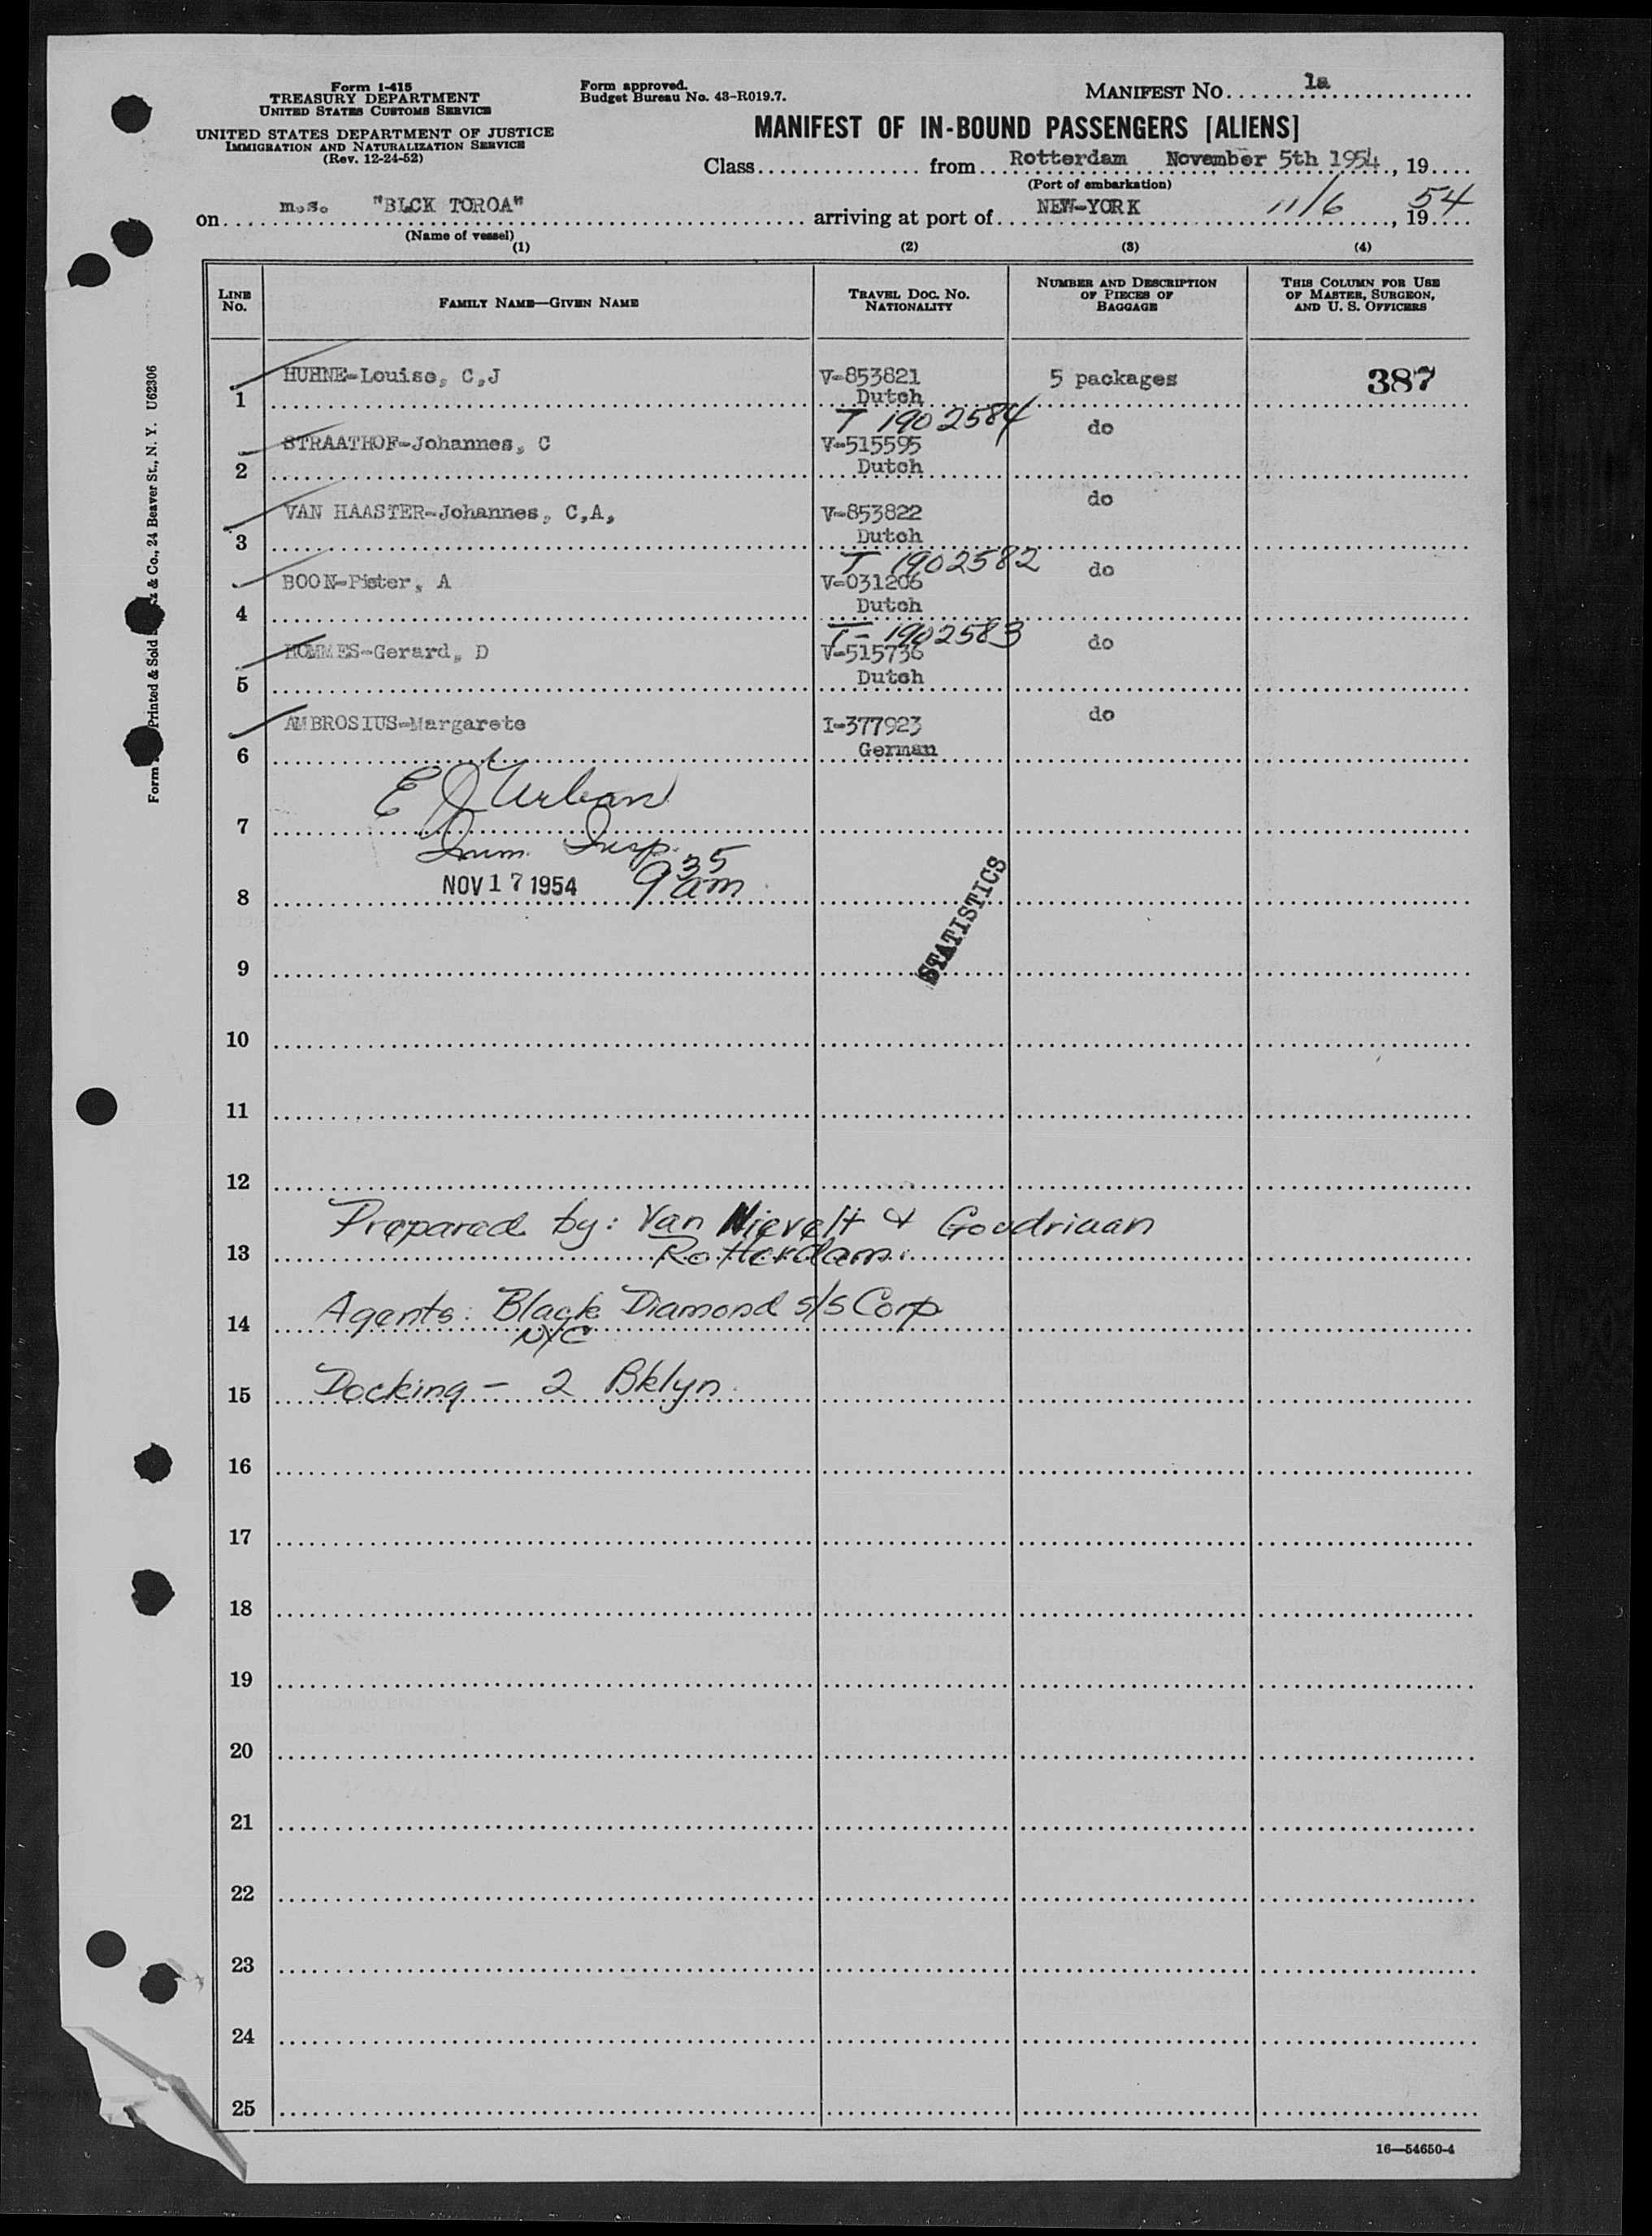 Form I-415
TREASURY DEPARTMENT
UNITED STATES CUSTOMS SERVICE
UNITED STATES DEPARTMENT OF JUSTICE
IMMIGRATION AND NATURALIZATION SERVICE
(Rev. 12-24-52)
Form approved.
Budget Bureau No. 43-R019.7.
MANIFEST NO. 1a
MANIFEST OF IN-BOUND PASSENGERS [ALIENS]
Class from Rotterdam November 5th 1954, 19
(Port of embarkation)
on m.s. "BLCK TOROA" arriving at port of NEW-YORK 11/6, 1954
(Name of vessel)
(1) (2) (3) (4)
LINE NO. FAMILY NAME—GIVEN NAME TRAVEL DOC. NO. NATIONALITY NUMBER AND DESCRIPTION OF PIECES OF BAGGAGE THIS COLUMN FOR USE OF MASTER, SURGEON, AND U. S. OFFICERS
1 HUHNE-Louise, C,J V-853821 5 packages 387
Dutch
T 1902584
2 STRAATHOF-Johannes, C V-515595 do
Dutch
3 VAN HAASTER-Johannes, C,A, V-853822 do
Dutch
T 1902582
4 BOON-Pieter, A V-031206 do
Dutch
T-1902583
5 HOMMES-Gerard, D V-515736 do
Dutch
6 AMBROSIUS-Margarete I-377923 do
German
E J Urban
7
Imm. Insp.
8 NOV 17 1954 9 35 am
STATISTICS
9
10
11
12
Prepared by: Van Nievelt & Goudriaan
13 Rotterdam
14 Agents: Black Diamond S/S Corp
NYC
15 Docking - 2 Bklyn.
16
17
18
19
20
21
22
23
24
25
16—54650-4
Form Printed & Sold & Co., 24 Beaver St., N. Y. U62306